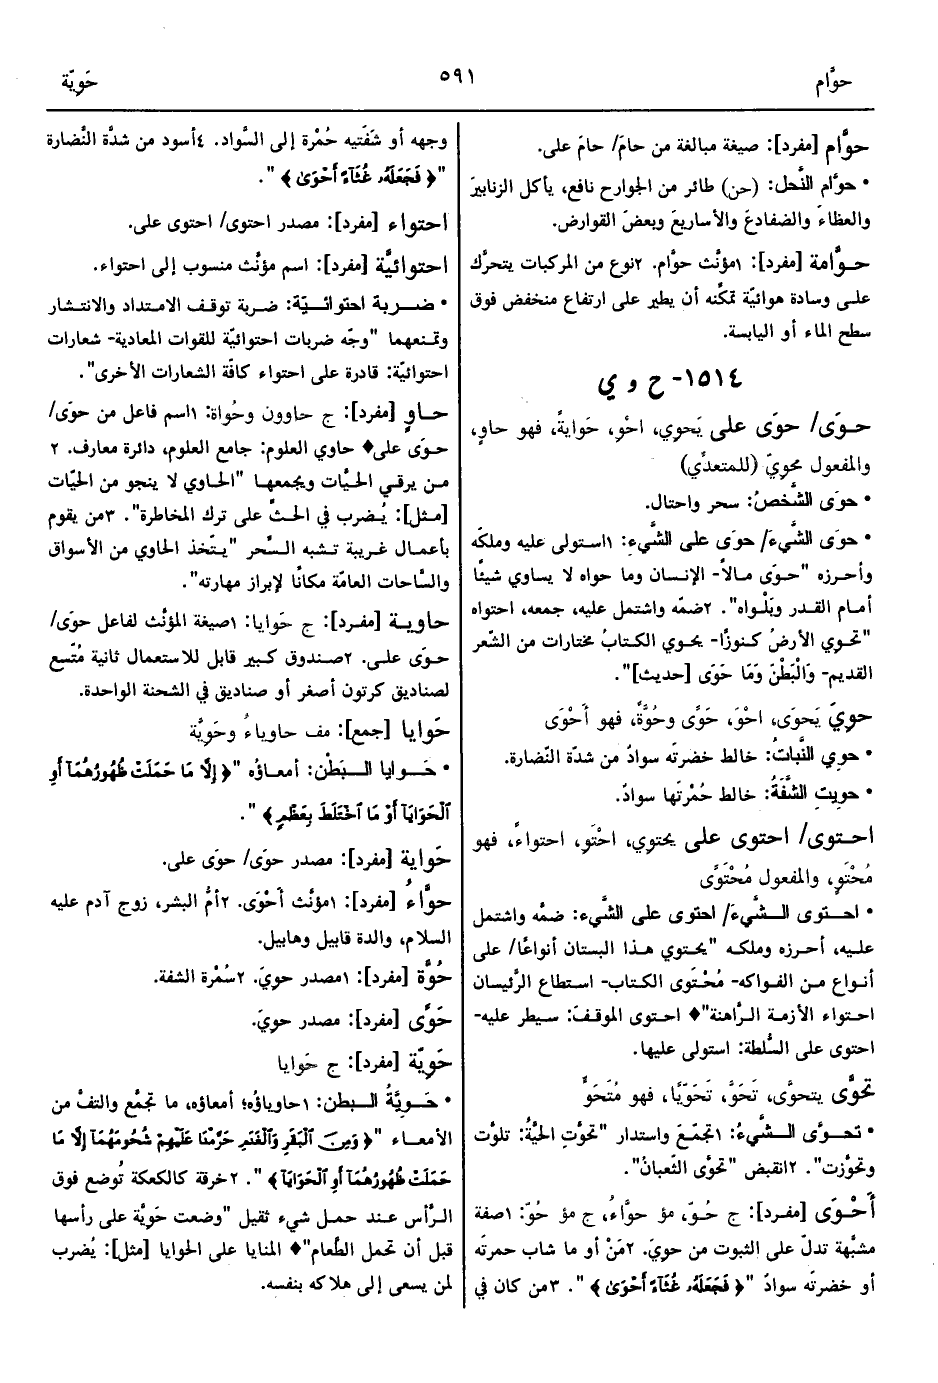 حوَّام
٥٩١
حَوِيّة
حوَّام [مفرد]: صيغة مبالغة من حامَ/ حامَ على.
• حوَّام النَّحل: (حن) طائر من الجوارح نافع، يأكل الزنابيرَ
والعظاءَ والضفادعَ والأساريعَ وبعضَ القوارض.
حوَّامة [مفرد]: ١مؤنَّث حوَّام. ٢نوع من المركبات يتحرَّك
على وسادة هوائيّة تمكِّنه أن يطير على ارتفاع منخفض فوق
سطح الماء أو اليابسة.
١٥١٤- ح و ي
حوَى/ حوَى على يَحوِي، احْوِ، حَوايةً، فهو حاوٍ،
والمفعول محويّ (للمتعدِّي)
• حوَى الشَّخصُ: سحر واحتال.
• حوَى الشَّيءَ/ حوَى على الشَّيءِ: ١استولى عليه وملكه
وأحرزه "حوَى مالاً- الإنسان وما حواه لا يساوي شيئًا
أمام القدر وبَلْواه". ٢ضمّه واشتمل عليه، جمعه، احتواه
"تحوي الأرضُ كنوزًا- يحوي الكتابُ مختارات من الشِّعر
القديم- وَالْبَطْنَ وَمَا حَوَى [حديث]".
حوِيَ يَحوَى، احْوَ، حَوًى وحُوَّةً، فهو أَحْوَى
• حوِي النَّباتُ: خالط خضرتَه سوادٌ من شدّة النّضارة.
• حوِيتِ الشَّفَةُ: خالط حُمْرتَها سوادٌ.
احتوى/ احتوى على يحتوي، احْتَوِ، احتواءً، فهو
مُحْتَوٍ، والمفعول مُحْتَوًى
• احتوى الشَّيءَ/ احتوى على الشَّيءِ: ضمَّه واشتمل
عليه، أحرزه وملكه "يحتوي هذا البستان أنواعًا/ على
أنواع من الفواكه- مُحْتَوى الكتاب- استطاع الرَّئيسان
احتواء الأزمة الرَّاهنة"♦ احتوى الموقفَ: سيطر عليه-
احتوى على السُّلطة: استولى عليها.
تحوَّى يتحوَّى، تَحَوَّ، تَحَوّيًا، فهو مُتَحَوٍّ
• تحوَّى الشَّيءُ: ١تجمَّعَ واستدار "تحوَّتِ الحيَّةُ: تلوَّت
وتحوَّزت". ٢انقبض "تحوَّى الثّعبانُ".
أَحْوَى [مفرد]: ج حُوّ، مؤ حوَّاءُ، ج مؤ حُوّ: ١صفة
مشبَّهة تدلّ على الثبوت من حوِيَ. ٢مَنْ أو ما شاب حمرتَه
أو خضرتَه سوادٌ "﴿ فَجَعَلَهُۥ غُثَآءً أَحْوَىٰ ﴾". ٣من كان في
وجهه أو شَفَتيه حُمْرة إلى السَّواد. ٤أسود من شدَّة النَّضارة
"﴿ فَجَعَلَهُۥ غُثَآءً أَحْوَىٰ ﴾".
احتواء [مفرد]: مصدر احتوى/ احتوى على.
احتوائيَّة [مفرد]: اسم مؤنَّث منسوب إلى احتواء.
• ضربة احتوائيّة: ضربة توقف الامتداد والانتشار
وتمنعهما "وجّه ضربات احتوائيّة للقوات المعادية- شعارات
احتوائيّة: قادرة على احتواء كافّة الشعارات الأخرى".
حاوٍ [مفرد]: ج حاوون وحُواة: ١اسم فاعل من حوَى/
حوَى على♦ حاوي العلوم: جامع العلوم، دائرة معارف. ٢
من يرقي الحيَّات ويجمعها "الحاوي لا ينجو من الحيّات
[مثل]: يُضرب في الحثّ على ترك المخاطرة". ٣من يقوم
بأعمال غريبة تشبه السِّحر "يتّخذ الحاوي من الأسواق
والسَّاحات العامّة مكانًا لإبراز مهارته".
حاوية [مفرد]: ج حَوايا: ١صيغة المؤنَّث لفاعل حوَى/
حوَى على. ٢صندوق كبير قابل للاستعمال ثانية مُتَّسع
لصناديق كرتون أصغر أو صناديق في الشحنة الواحدة.
حَوايا [جمع]: مف حاوياءُ وحَوِيَّة
• حَوايا البَطْن: أمعاؤه "﴿ إِلَّا مَا حَمَلَتْ ظُهُورُهُمَآ أَوِ
ٱلْحَوَايَآ أَوْ مَا ٱخْتَلَطَ بِعَظْمٍ ﴾".
حَواية [مفرد]: مصدر حوَى/ حوَى على.
حوَّاءُ [مفرد]: ١مؤنَّث أَحْوَى. ٢أمُّ البشر، زوج آدم عليه
السلام، والدة قابيل وهابيل.
حُوَّة [مفرد]: ١مصدر حوِيَ. ٢سُمْرة الشفة.
حَوًى [مفرد]: مصدر حوِيَ.
حَوِيّة [مفرد]: ج حَوايا
• حَوِيَّة البطن: ١حاوياؤه؛ أمعاؤه، ما تجمَّع والتفّ من
الأمعاء "﴿ وَمِنَ ٱلْبَقَرِ وَٱلْغَنَمِ حَرَّمْنَا عَلَيْهِمْ شُحُومَهُمَآ إِلَّا مَا
حَمَلَتْ ظُهُورُهُمَآ أَوِ ٱلْحَوَايَآ ﴾". ٢خرقة كالكعكة تُوضع فوق
الرَّأس عند حمل شيء ثقيل "وضعت حَوِيَّة على رأسها
قبل أن تحمل الطَّعام"♦ المنايا على الحوايا [مثل]: يُضرب
لمن يسعى إلى هلاكه بنفسه.